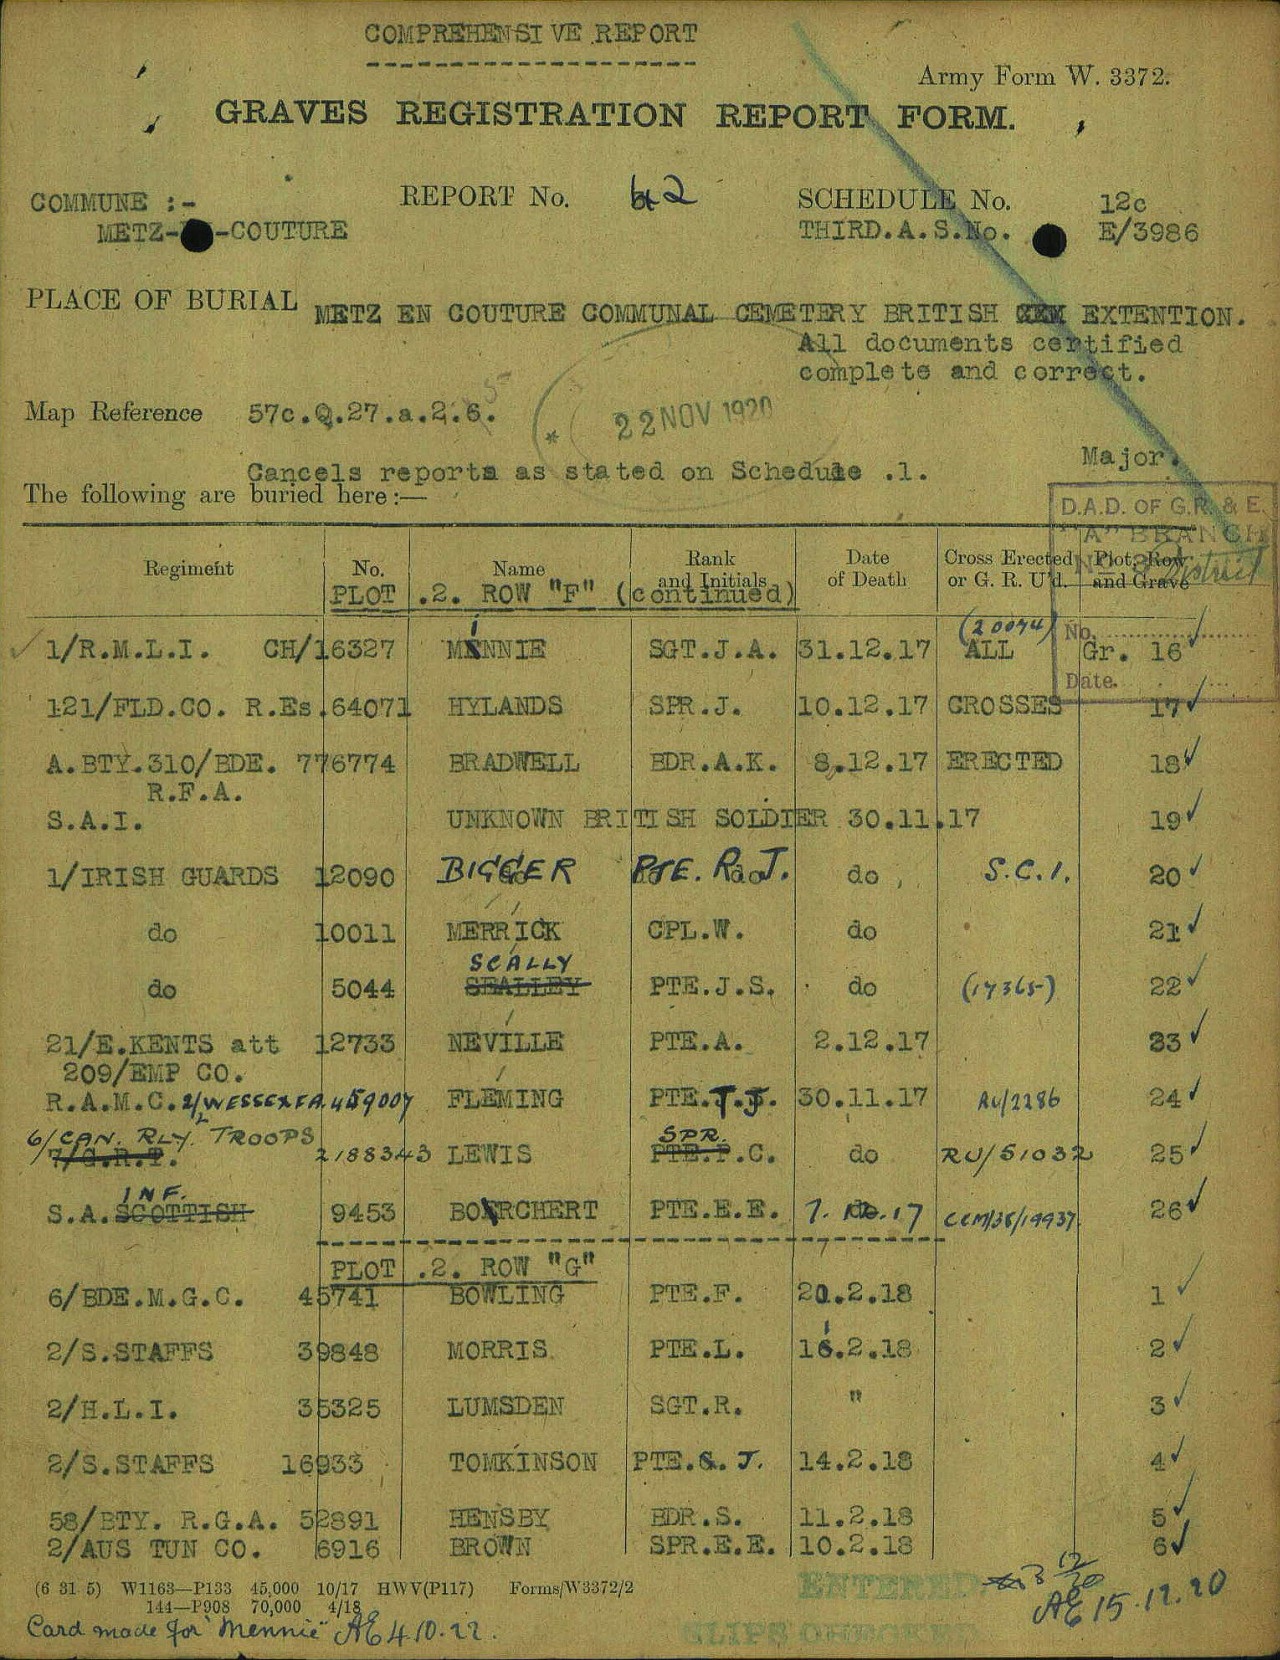 COMPREHENSIVE REPORT
Army Form W. 3372.
GRAVES REGISTRATION REPORT FORM.
COMMUNE :- REPORT No. 62 SCHEDULE No. 12c
METZ- -COUTURE THIRD.A.S.No. E/3986
PLACE OF BURIAL METZ EN COUTURE COMMUNAL CEMETERY BRITISH EXTENTION.
All documents certified
complete and correct.
Map Reference 57c.Q.27.a.2.6.
22 NOV 1920
Major.
Cancels reports as stated on Schedule .1.
The following are buried here :—
D.A.D. OF G.R. & E.
"A" BRANCH
District
Regiment No. Name Rank and Initials Date of Death Cross Erected or G. R. U'd. Plot, Row and Grave
PLOT .2. ROW "F" (continued)
No.
Date.
1/R.M.L.I. CH/16327 MINNIE SGT.J.A. 31.12.17 (20074) ALL Gr. 16
121/FLD.CO. R.Es. 64071 HYLANDS SPR.J. 10.12.17 CROSSES 17
A.BTY.310/BDE. 776774 BRADWELL BDR.A.K. 8.12.17 ERECTED 18
R.F.A.
S.A.I. UNKNOWN BRITISH SOLDIER 30.11.17 19
1/IRISH GUARDS 12090 BIGGER PTE. R.J. do S.C.1. 20
do 10011 MERRICK CPL.W. do 21
SCALLY
do 5044 SEALLEY PTE.J.S. do (17365) 22
21/E.KENTS att 12733 NEVILLE PTE.A. 2.12.17 23
209/EMP CO.
R.A.M.C. 2/WESSEX FA. 459007 FLEMING PTE.T.J. 30.11.17 AU/2286 24
6/CAN. RLY. TROOPS SPR.
7/C.R.T. 2188343 LEWIS PTE.P.C. do RU/51032 25
INF.
S.A.SCOTTISH 9453 BORCHERT PTE.E.E. 7. 12.17 CEM/38/19937 26
PLOT .2. ROW "G"
6/BDE.M.G.C. 45741 BOWLING PTE.F. 20.2.18 1
2/S.STAFFS 39848 MORRIS PTE.L. 16.2.18 2
2/H.L.I. 35325 LUMSDEN SGT.R. " 3
2/S.STAFFS 16933 TOMKINSON PTE.S. J. 14.2.18 4
58/BTY. R.G.A. 52891 HENSBY BDR.S. 11.2.18 5
2/AUS TUN CO. 6916 BROWN SPR.E.E. 10.2.18 6
(6 31 5) W1163—P133 45,000 10/17 HWV(P117) Forms/W3372/2
144—P908 70,000 4/18
ENTERED
AE 15.12.20
Card made for "Mennie" AE 4.10.22.
SLIPS CHECKED